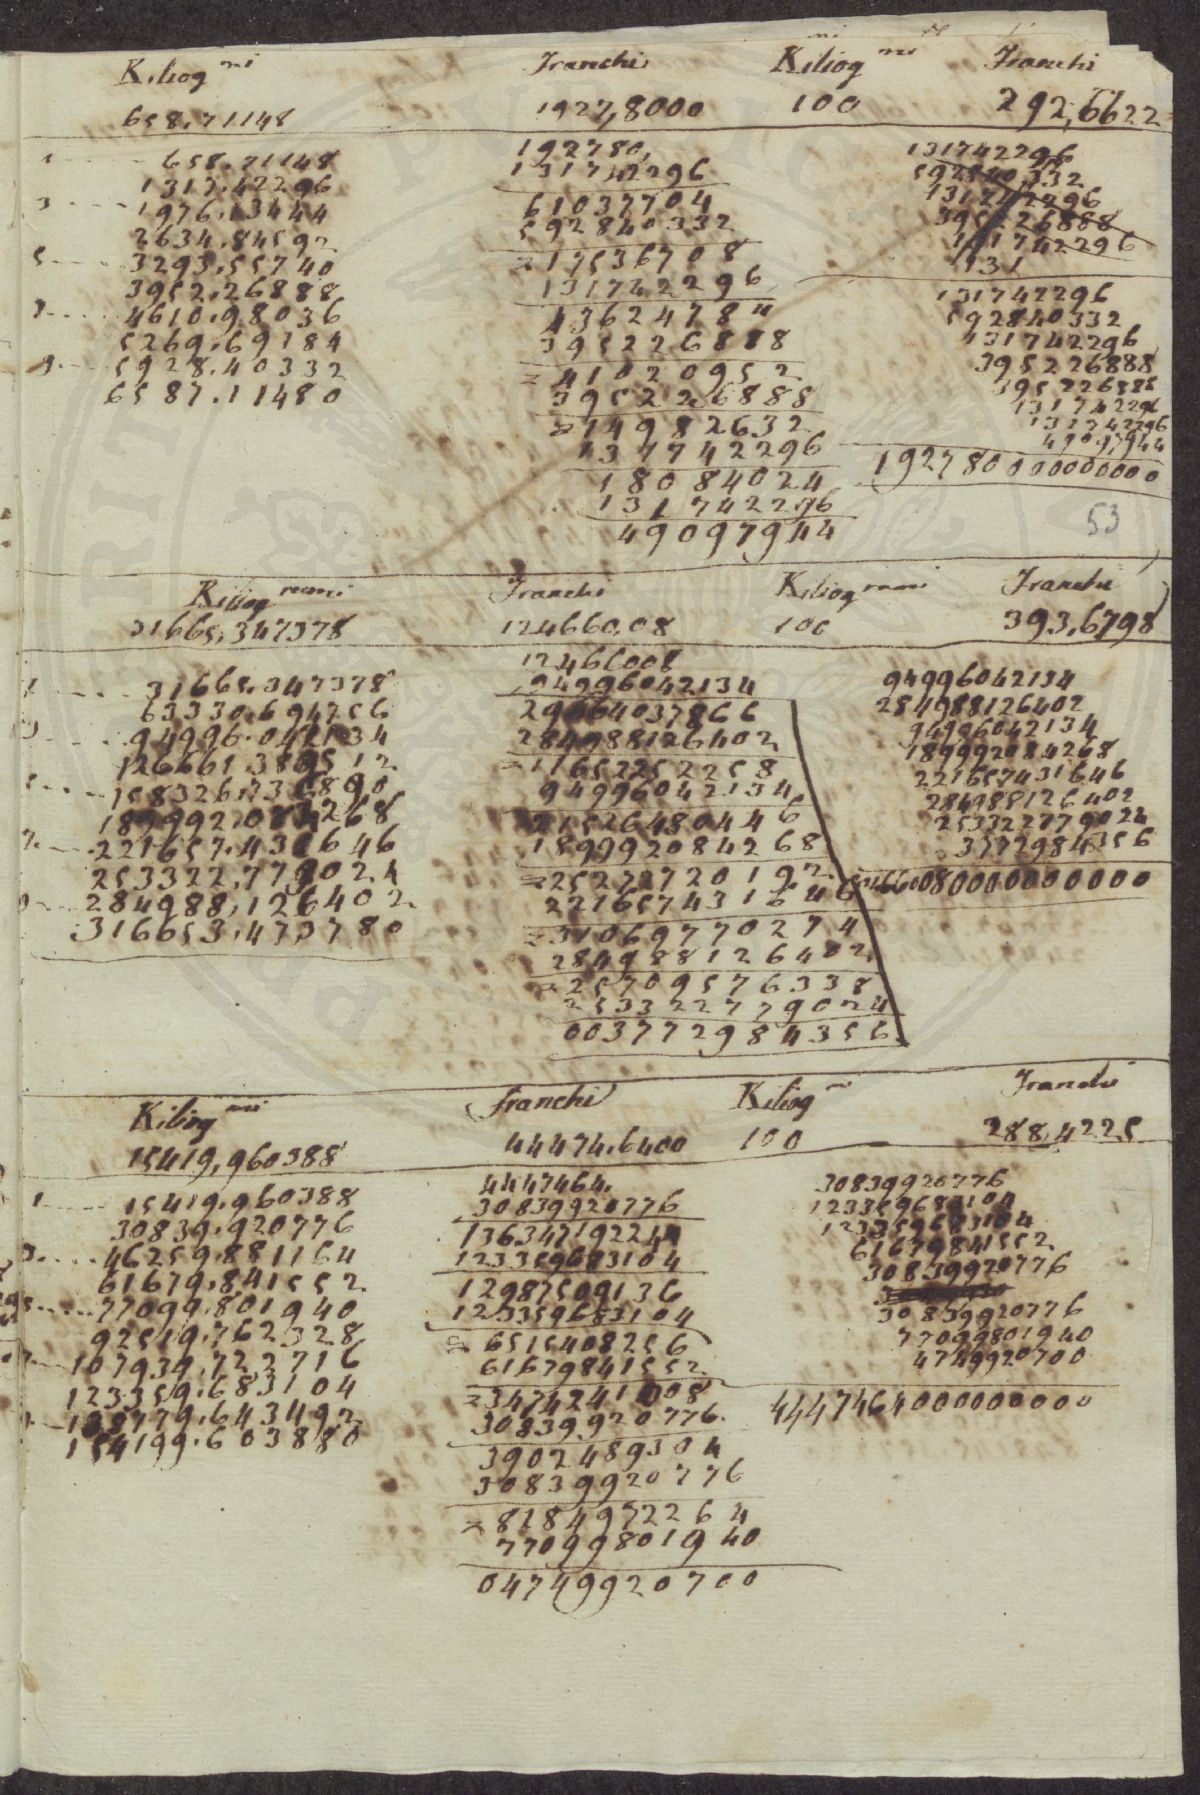 Kiliog mi Franchi Kiliog mi Franchi
658.71148 1927,8000 100 292,6622
1 658.71148
1317.42296
3 1976.13444
2634.84592
5 3293.55740
3952.26888
7 4610.98036
5269.69184
9 5928.40332
6587.11480
192780,
131742296
61037704
592840332
=17536708
131742296
43624784
395226888
=41020952
395226888
=14982632
131742296
18084024
131742296
49097944
131742296
592840332
131742296
395226888
131742296
131
131742296
592840332
131742296
395226888
395226888
131742296
131742296
49097944
19278000000000000
53
Kiliogrammi Franchi Kiliogrammi Franchi
31665,347378 124660,08 100 393,6798
1 31665.347378
63330.694756
3 94996.042134
126661.389512
5 158326.736890
189992.084268
7 221657.431646
253322.779024
9 284988.126402
316653.473780
12466008
94996042134
29664037866
284988126402
=11652252258
94996042134
21526480446
189992084268
=25272720192
221657431646
=31069770274
284988126402
=25709576338
253322779024
003772984356
94996042134
284988126402
94996042134
189992084268
221657431646
284988126402
253322779024
3772984356
Kiliog mi franchi Kiliog mi Franchi
15419,960388 44474.6400 100 288,4225
1 15419.960388
30839.920776
3 46259.881164
61679.841552
5 77099.801940
92519.762328
7 107939.722716
123359.683104
9 138779.643492
154199.603880
4447464.
30839920776
136347192240
123359683104
12987509136
123359683104
=6515408256
61679841552
=34742411008
30839920776
3902489304
30839920776
=8184972264
77099801940
04749920700
30839920776
123359683104
123359683104
61679841552
30839920776
30839920776
77099801940
4749920700
444746400000000000